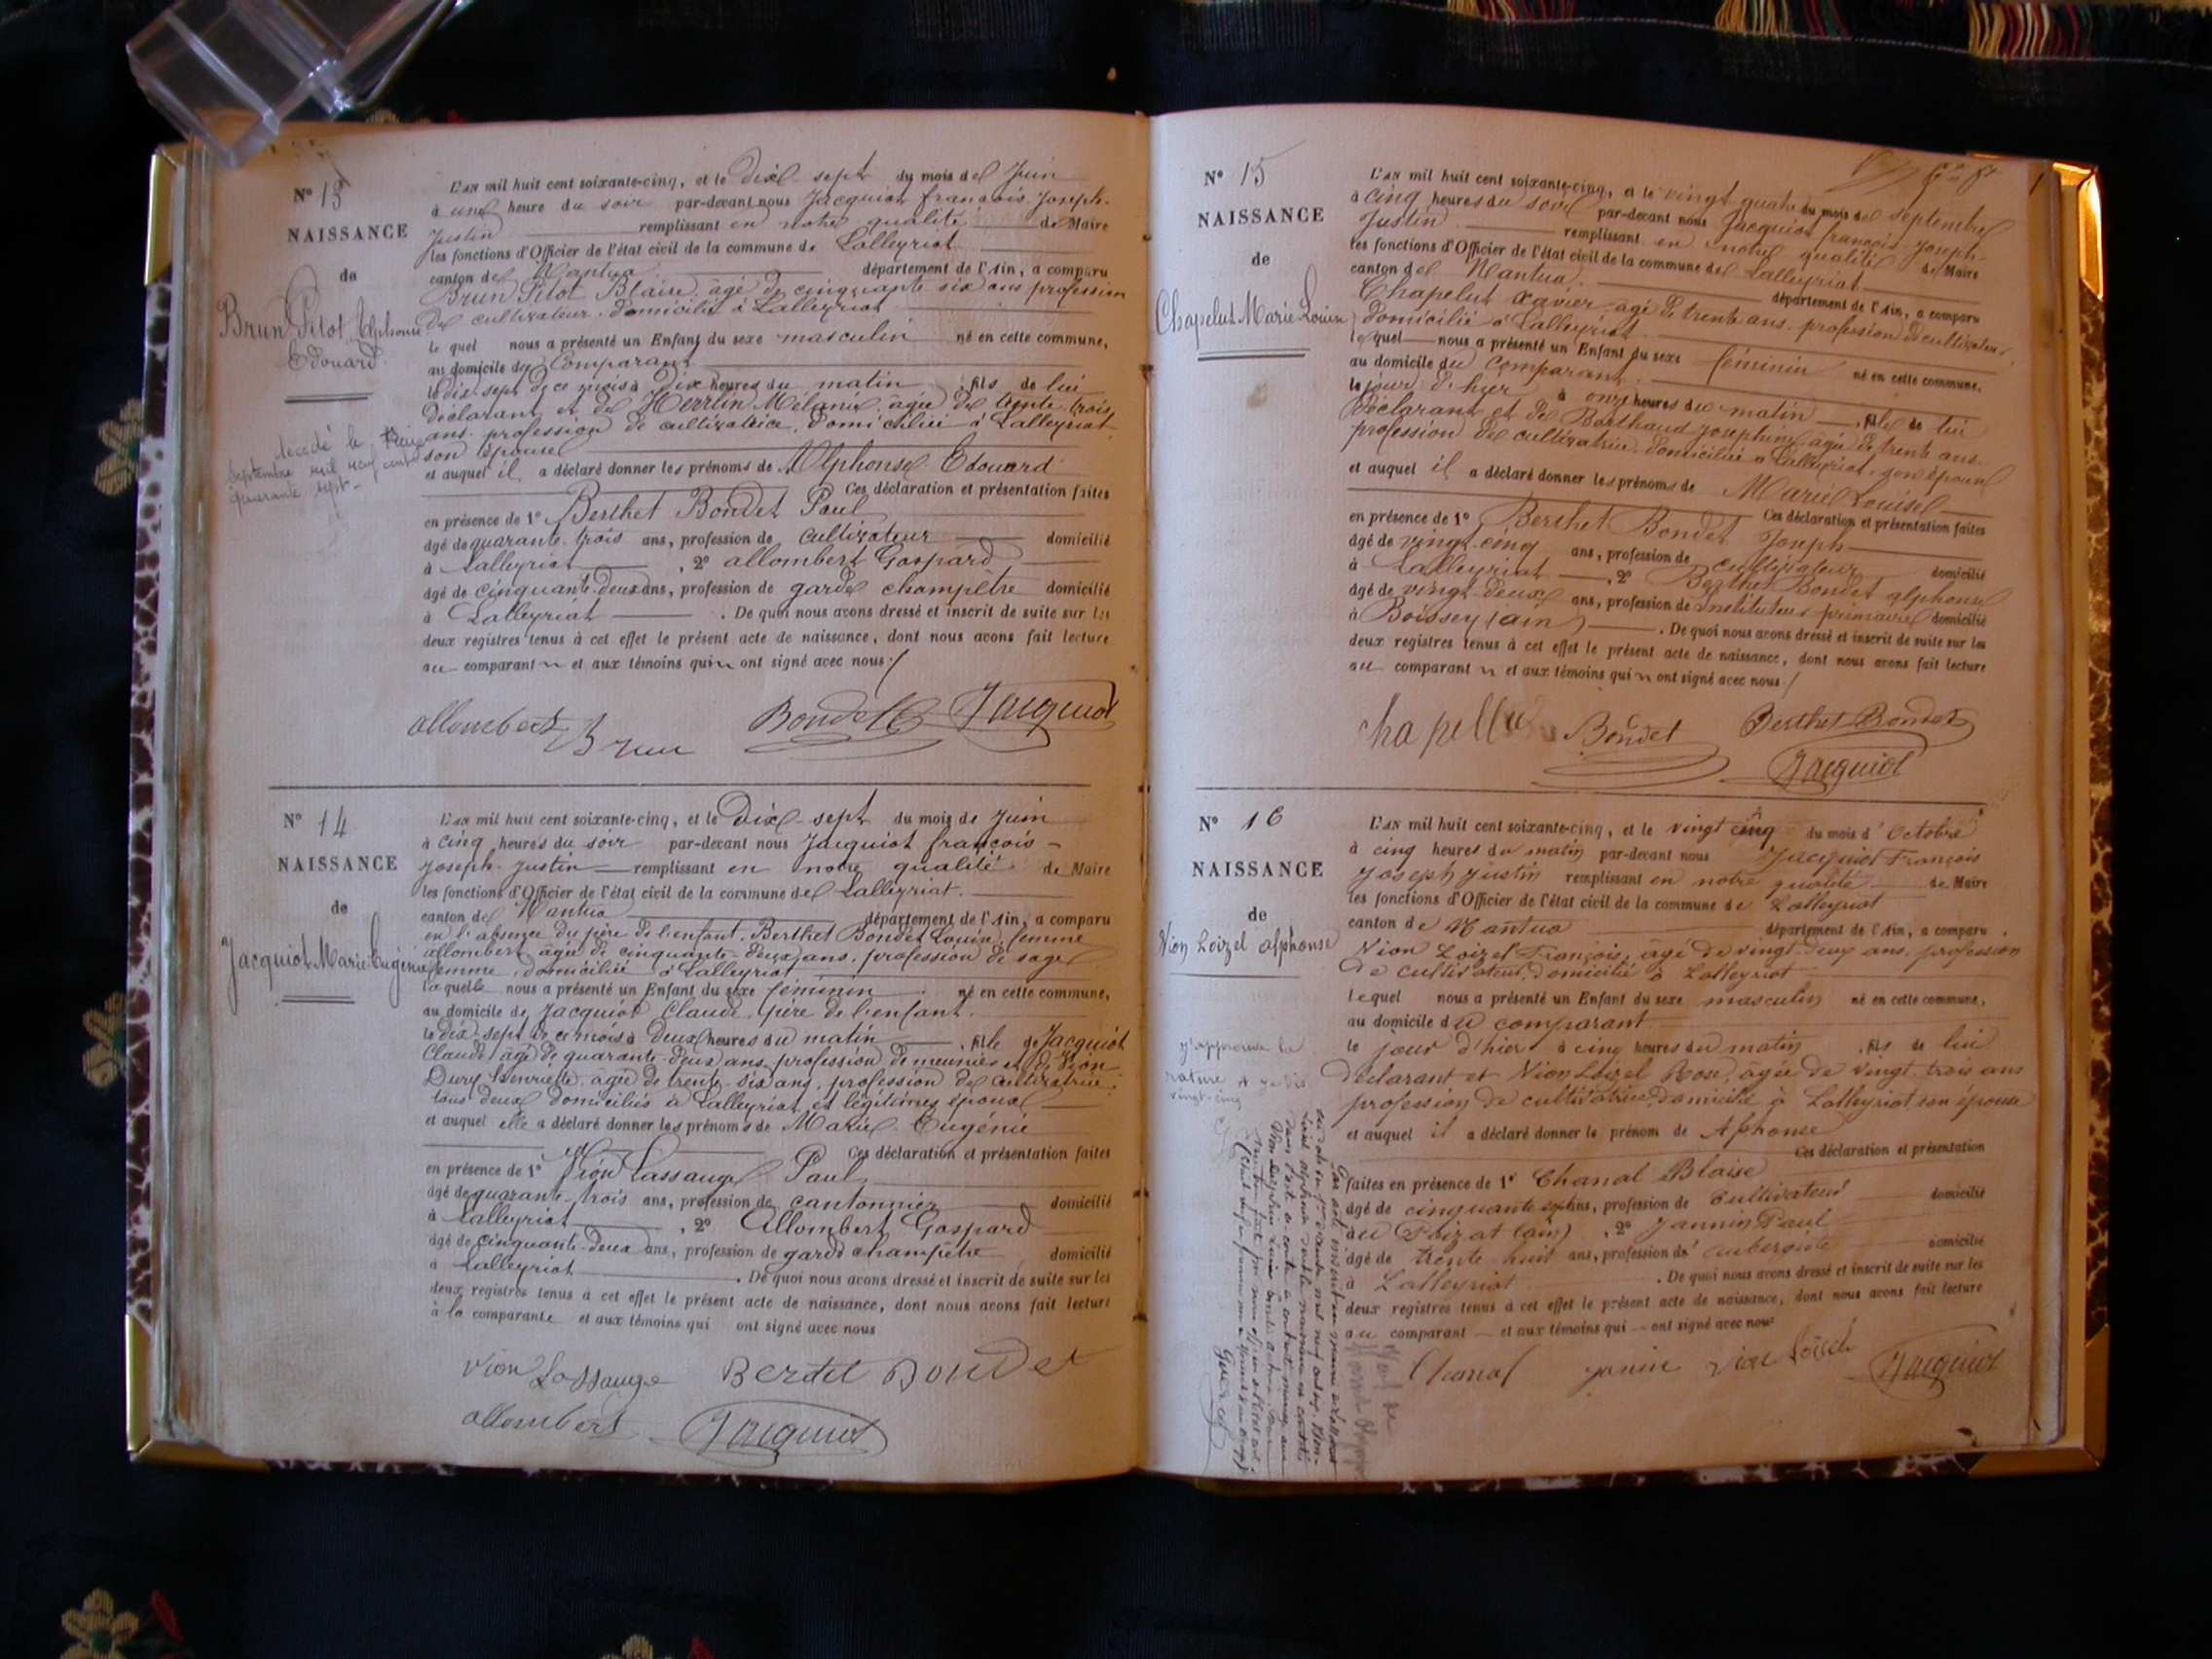 N° 13
NAISSANCE
de
Brun Pilot Alphonse
Edouard
décédé le
Septembre mil neuf cent
quarante sept
L'an mil huit cent soixante-cinq, et le dix sept du mois de Juin
à une heure du soir par-devant nous Jacquiot françois Joseph-
Justin remplissant en notre qualité de Maire
les fonctions d'Officier de l'état civil de la commune de Lalleyriat
canton de Nantua département de l'Ain, a comparu
Brun Pilot Blaise, âgé de cinquante six ans profession
de cultivateur, domicilié à Lalleyriat
le quel nous a présenté un Enfant du sexe masculin né en cette commune,
au domicile du Comparant
le dix sept de ce mois à dix heures du matin, fils de lui
déclarant et de Herrlin Mélanie, âgée de trente trois
ans, profession de cultivatrice, domiciliée à Lalleyriat,
son épouse
et auquel il a déclaré donner les prénoms de Alphonse Edouard
Ces déclaration et présentation faites
en présence de 1° Berthet Bondet Paul
âgé de quarante trois ans, profession de cultivateur domicilié
à Lalleyriat, 2° allombert Gaspard
âgé de cinquante-deux ans, profession de garde champêtre domicilié
à Lalleyriat. De quoi nous avons dressé et inscrit de suite sur les
deux registres tenus à cet effet le présent acte de naissance, dont nous avons fait lecture
au comparant et aux témoins qui ont signé avec nous
allombert Brun Bondet Jacquiot
N° 14
NAISSANCE
de
Jacquiot Marie Eugénie
L'an mil huit cent soixante-cinq, et le dix sept du mois de Juin
à cinq heures du soir par-devant nous Jacquiot françois-
Joseph-Justin remplissant en notre qualité de Maire
les fonctions d'Officier de l'état civil de la commune de Lalleyriat.
canton de Nantua département de l'Ain, a comparu
en l'absence du père de l'enfant, Berthet Bondet Louise, femme
allombert, âgée de cinquante-deux ans, profession de sage
femme, domiciliée à Lalleyriat
laquelle nous a présenté un Enfant du sexe féminin né en cette commune,
au domicile de Jacquiot Claude, père de l'enfant.
le dix-sept de ce mois à deux heures du matin, fille de Jacquiot
Claude, âgé de quarante-deux ans, profession de meunier et de Vion
Dury henriette, âgée de trente-six ans, profession de cultivatrice,
tous deux domiciliés à Lalleyriat et légitimes époux
et auquel elle a déclaré donner les prénoms de Marie Eugénie
Ces déclaration et présentation faites
en présence de 1° Vion Lassauge Paul
âgé de quarante trois ans, profession de cantonnier domicilié
à Lalleyriat, 2° Allombert Gaspard
âgé de cinquante-deux ans, profession de garde champêtre domicilié
à Lalleyriat. De quoi nous avons dressé et inscrit de suite sur les
deux registres tenus à cet effet le présent acte de naissance, dont nous avons fait lecture
à la comparante et aux témoins qui ont signé avec nous
Vion Lassauge Bertet Bondet
allombert Jacquiot
N° 15
NAISSANCE
de
Chapelut Marie Louise
L'an mil huit cent soixante-cinq, et le vingt quatre du mois de septembre
à cinq heures du soir par-devant nous Jacquiot françois-Joseph-
Justin remplissant en notre qualité de Maire
les fonctions d'Officier de l'état civil de la commune de Lalleyriat
canton de Nantua. département de l'Ain, a comparu
Chapelut Xavier, âgé de trente ans, profession de cultivateur,
domicilié à Lalleyriat.
lequel nous a présenté un Enfant du sexe féminin né en cette commune,
au domicile du comparant.
le jour d'hier à onze heures du matin, fille de lui
déclarant et de Barthaud Josephine, âgée de trente ans,
profession de cultivatrice, domiciliée à Lalleyriat, son épouse
et auquel il a déclaré donner les prénoms de Marie Louise
Ces déclaration et présentation faites
en présence de 1° Berthet Bondet Joseph
âgé de vingt-cinq ans, profession de cultivateur domicilié
à Lalleyriat, 2° Berthet Bondet alphonse
âgé de vingt-deux ans, profession de Instituteur primaire domicilié
à Boissey (ain). De quoi nous avons dressé et inscrit de suite sur les
deux registres tenus à cet effet le présent acte de naissance, dont nous avons fait lecture
au comparant et aux témoins qui ont signé avec nous
Bondet Berthet-Bondet
Jacquiot
N° 16
NAISSANCE
de
Vion Loizel alphonse
j'approuve la
rature
vingt-cinq
L'an mil huit cent soixante-cinq, et le vingt cinq du mois d'Octobre
à cinq heures du matin par-devant nous Jacquiot François
Joseph Justin remplissant en notre qualité de Maire
les fonctions d'Officier de l'état civil de la commune de Lalleyriat
canton de Nantua département de l'Ain, a comparu
Vion Loizel François, âgé de vingt-deux ans, profession
de cultivateur, domicilié à Lalleyriat
lequel nous a présenté un Enfant du sexe masculin né en cette commune,
au domicile du comparant
le jour d'hier à cinq heures du matin, fils de lui
déclarant et Vion Loizel Rose, âgée de vingt trois ans
profession de cultivatrice, domicilié à Lalleyriat son épouse
et auquel il a déclaré donner le prénom de Aphonse
Ces déclaration et présentation
faites en présence de 1° Chanal Blaise
âgé de cinquante ans, profession de cultivateur domicilié
au Poizat (ain), 2° Jannin Paul
âgé de trente huit ans, profession d'aubergiste domicilié
à Lalleyriat. De quoi nous avons dressé et inscrit de suite sur les
deux registres tenus à cet effet le présent acte de naissance, dont nous avons fait lecture
au comparant et aux témoins qui ont signé avec nous
Chanal Janin Vion Loizel Jacquiot